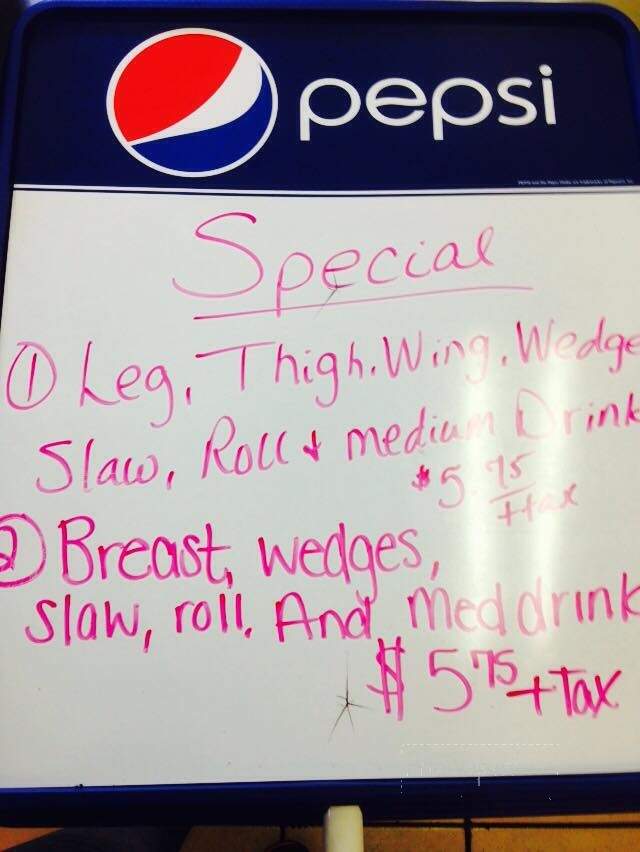 pepsi
Special
① Leg, Thigh. Wing, Wedge
Slaw, Roll & medium Drink
$5.75
+tax
② Breast, wedges,
slaw, roll, And med drink
$5 75 + Tax